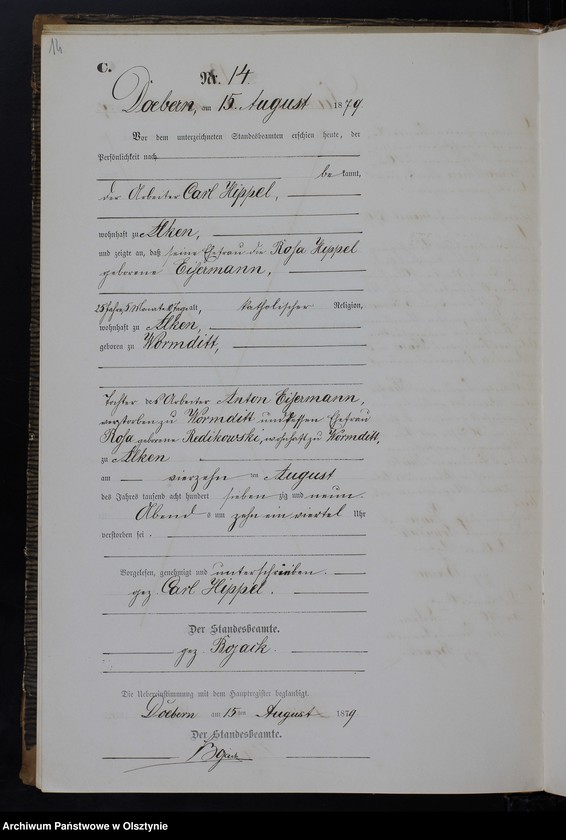 14
C.
Nr. 14.
Doebern, am 15. August 1879
Vor dem unterzeichneten Standesbeamten erschien heute, der
Persönlichkeit nach
be kannt,
der Arbeiter Carl Hippel,
wohnhaft zu Alken,
und zeigte an, daß seine Ehefrau die Rosa Hippel
geborene Eisermann,
25 Jahre, 5 Monate Tage alt, katholischer Religion,
wohnhaft zu Alken,
geboren zu Wormditt,
Tochter des Arbeiter Anton Eisermann,
verstorben zu Wormditt und dessen Ehefrau
Rosa geborene Redikowski, wohnhaft zu Wormditt,
zu Alken
am vierzehn ten August
des Jahres tausend acht hundert sieben zig und neun
Abend s um zehn ein viertel Uhr
verstorben sei.
Vorgelesen, genehmigt und unterschrieben.
gez. Carl Hippel.
Der Standesbeamte.
gez.
Die Uebereinstimmung mit dem Hauptregister beglaubigt.
Doebern am 15ten August 1879
Der Standesbeamte.
Archiwum Państwowe w Olsztynie